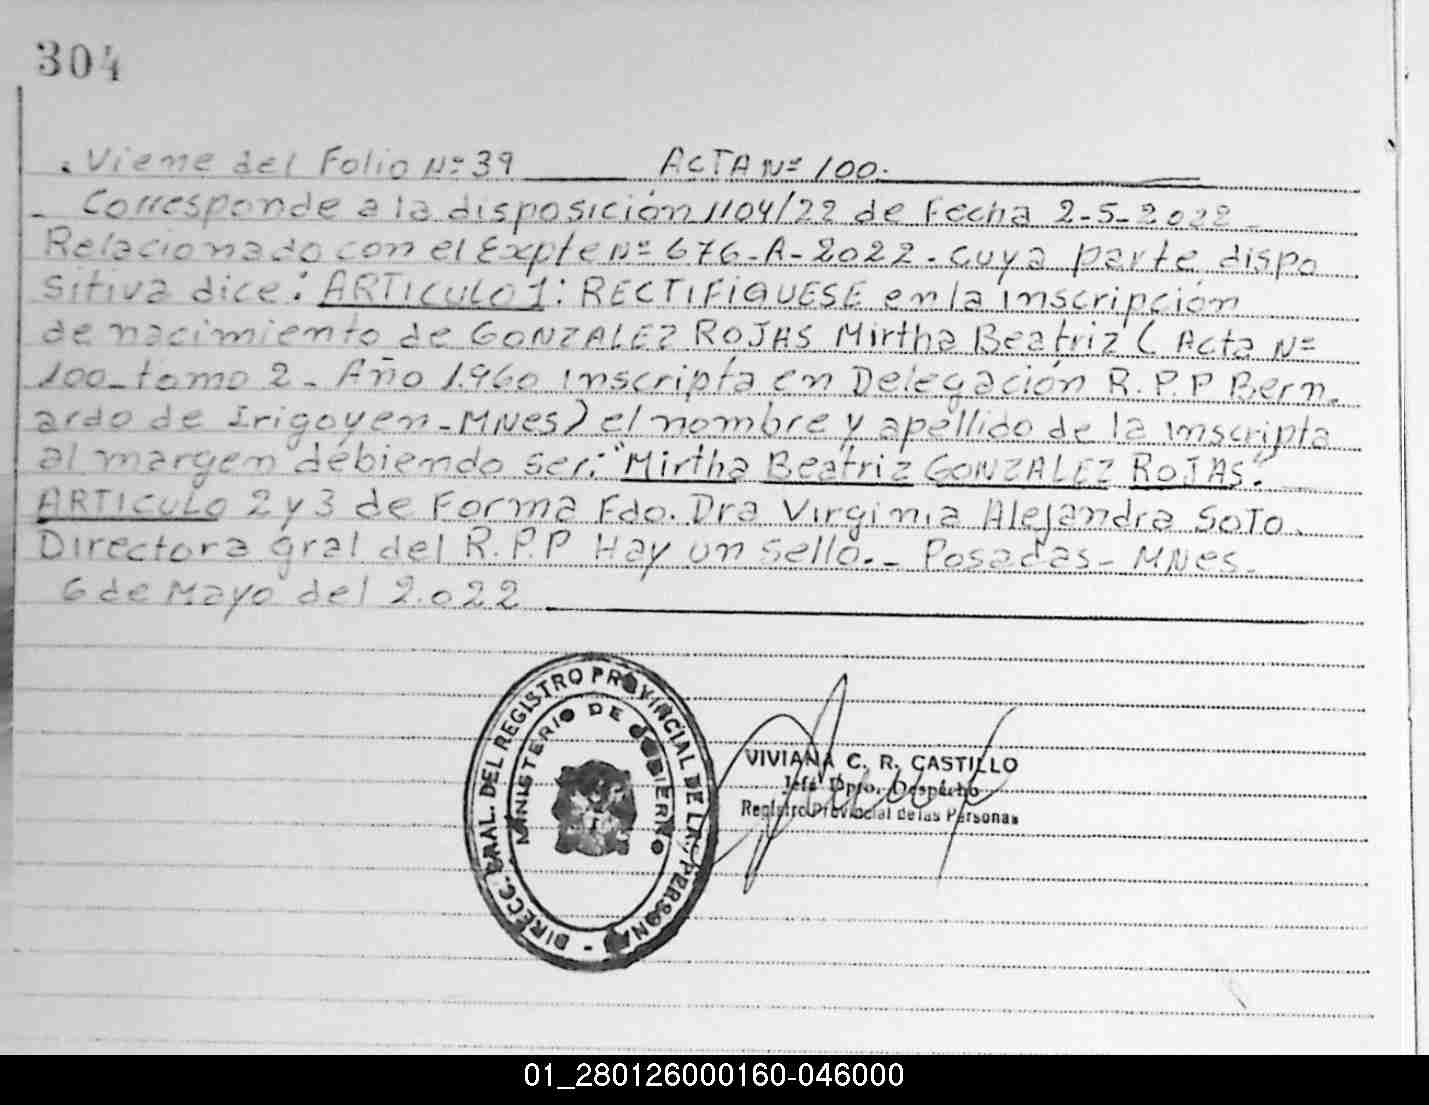 304
. Viene del Folio Nº 39 ACTA Nº 100.
- Corresponde a la disposición 1104/22 de Fecha 2-5-2022-
Relacionado con el Expte Nº 676-A-2022. cuya parte dispo
sitiva dice: ARTICULO 1: RECTIFIQUESE en la inscripción
de nacimiento de GONZALEZ ROJAS Mirtha Beatriz ( Acta Nº
100_tomo 2_ Año 1.960 inscripta en Delegación R.P.P Bern_
ardo de Irigoyen-MNes) el nombre y apellido de la inscripta
al margen debiendo ser: "Mirtha Beatriz GONZALEZ ROJAS".
ARTICULO 2 y 3 de Forma Fdo. Dra Virginia Alejandra SOTO.
Directora gral del R.P.P Hay un sello._ Posadas_ MNes_
6 de Mayo del 2.022
DIRECC. GRAL. DEL REGISTRO PROVINCIAL DE LAS PERSONAS -
MINISTERIO DE GOBIERNO
VIVIANA C. R. CASTILLO
Jefa Dpto. Despacho
Registro Provincial de las Personas
01_280126000160-046000